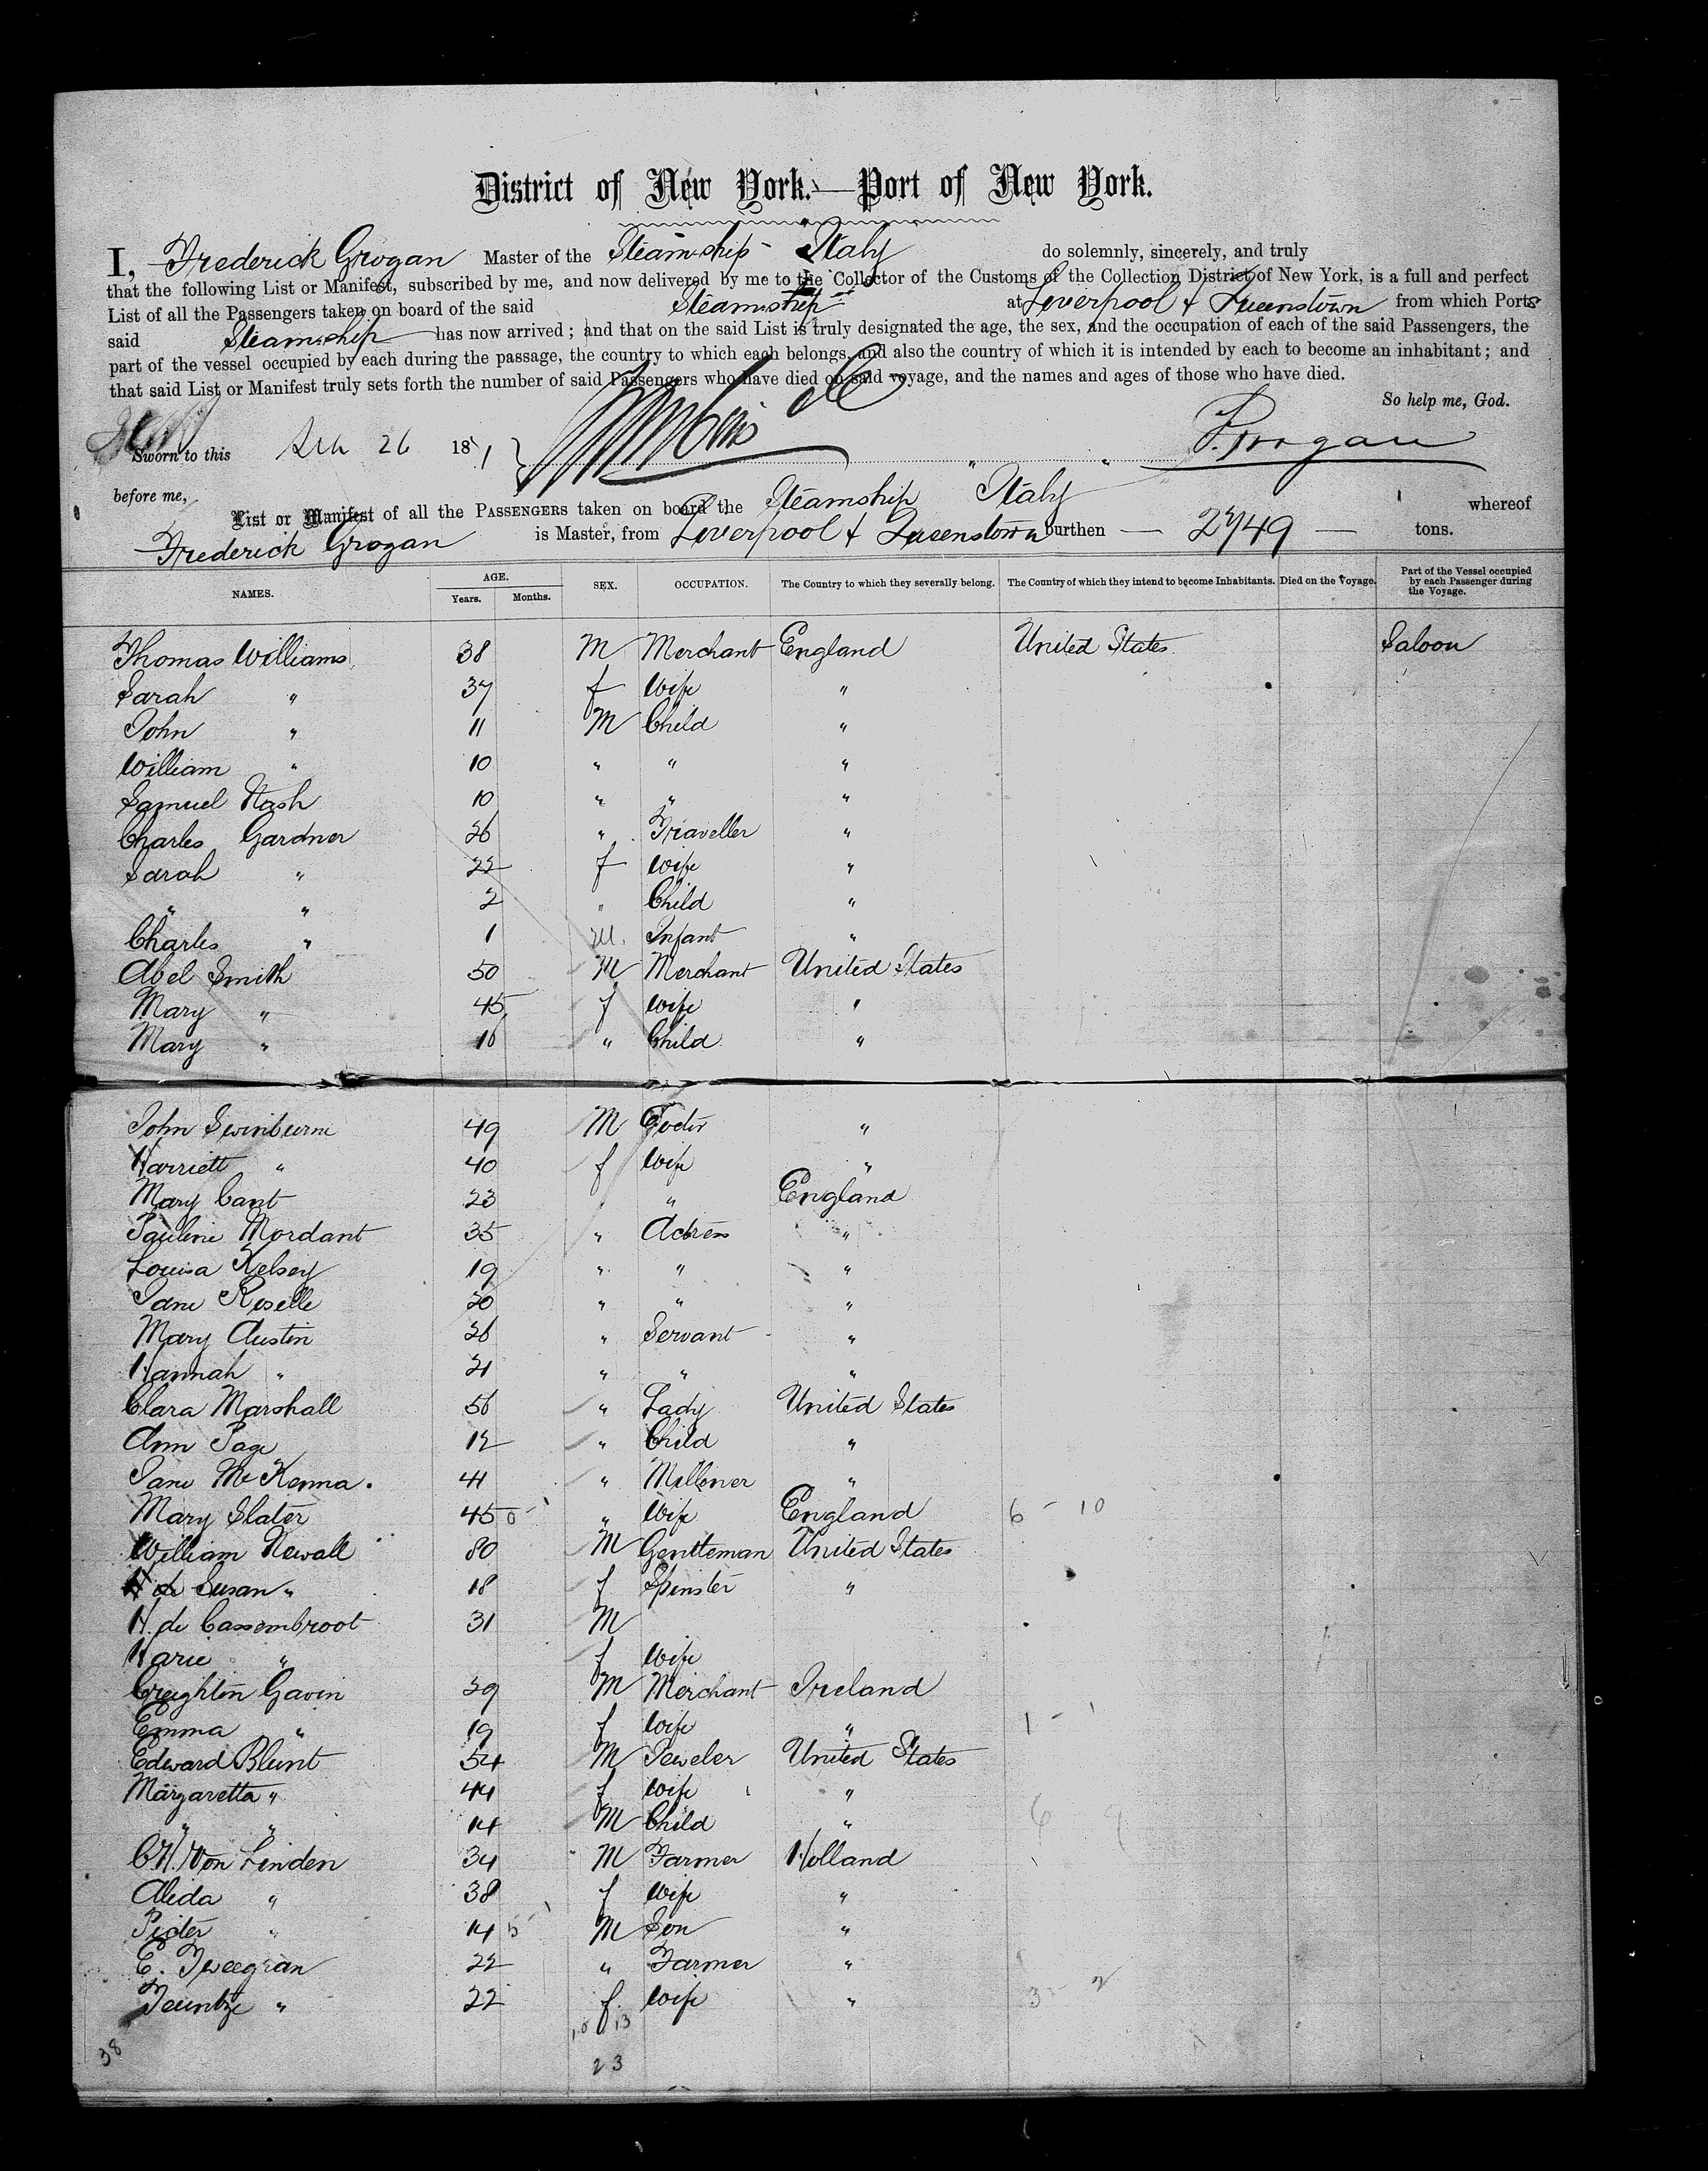 District of New York.—Port of New York.
I, Frederick Grogan Master of the Steamship Italy do solemnly, sincerely, and truly
that the following List or Manifest, subscribed by me, and now delivered by me to the Collector of the Customs of the Collection District of New York, is a full and perfect
List of all the Passengers taken on board of the said Steamship at Liverpool & Queenstown from which Ports
said Steamship has now arrived; and that on the said List is truly designated the age, the sex, and the occupation of each of the said Passengers, the
part of the vessel occupied by each during the passage, the country to which each belongs, and also the country of which it is intended by each to become an inhabitant; and
that said List or Manifest truly sets forth the number of said Passengers who have died on said voyage, and the names and ages of those who have died.
So help me, God.
Sworn to this 26 18 F. Grogan
before me,
List or Manifest of all the PASSENGERS taken on board the Steamship Italy whereof
Frederick Grogan is Master, from Liverpool & Queenstown burthen — 2749 — tons.
NAMES. AGE. Years. Months. SEX. OCCUPATION. The Country to which they severally belong. The Country of which they intend to become Inhabitants. Died on the Voyage. Part of the Vessel occupied by each Passenger during the Voyage.
Thomas Williams 38 M Merchant England United States Saloon
Sarah " 37 f Wife "
John " 11 M Child "
William " 10 " " "
Samuel Nash 10 " " "
Charles Gardner 26 " Traveller "
Sarah " 22 f Wife "
" " 2 " Child "
Charles " 1 M. Infant "
Abel Smith 50 M Merchant United States
Mary " 45 f Wife "
Mary " 16 " Child "
John Swinburne 49 M "
Harriett " 40 f Wife "
Mary Cant 23 " England
Pauline Mordant 35 " Actress "
Louisa Kelsey 19 " " "
Jane Roselle 20 " " "
Mary Austin 26 " Servant "
Hannah " 21 " " "
Clara Marshall 56 " Lady United States
Ann Page 12 " Child "
Jane McKenna. 41 " Milliner "
Mary Slater 45 " Wife England 6 - 10
William Newall 80 M Gentleman United States
Susan " 18 f Spinster "
H. de Cassembroot 31 M
Marie " f Wife
Creighton Gavin 29 M Merchant Ireland
Emma " 19 f Wife " 1 - 1
Edward Blunt 54 M Jeweler United States
Margaretta " 44 f Wife "
" " 14 M Child " 6
C.H. Von Linden 34 M Farmer Holland
Aleida " 38 f Wife "
Pieter " 14 M Son "
E. Tweegran 22 " Farmer "
Teuntze " 22 f. Wife " 3 - 2
10 13
38 23